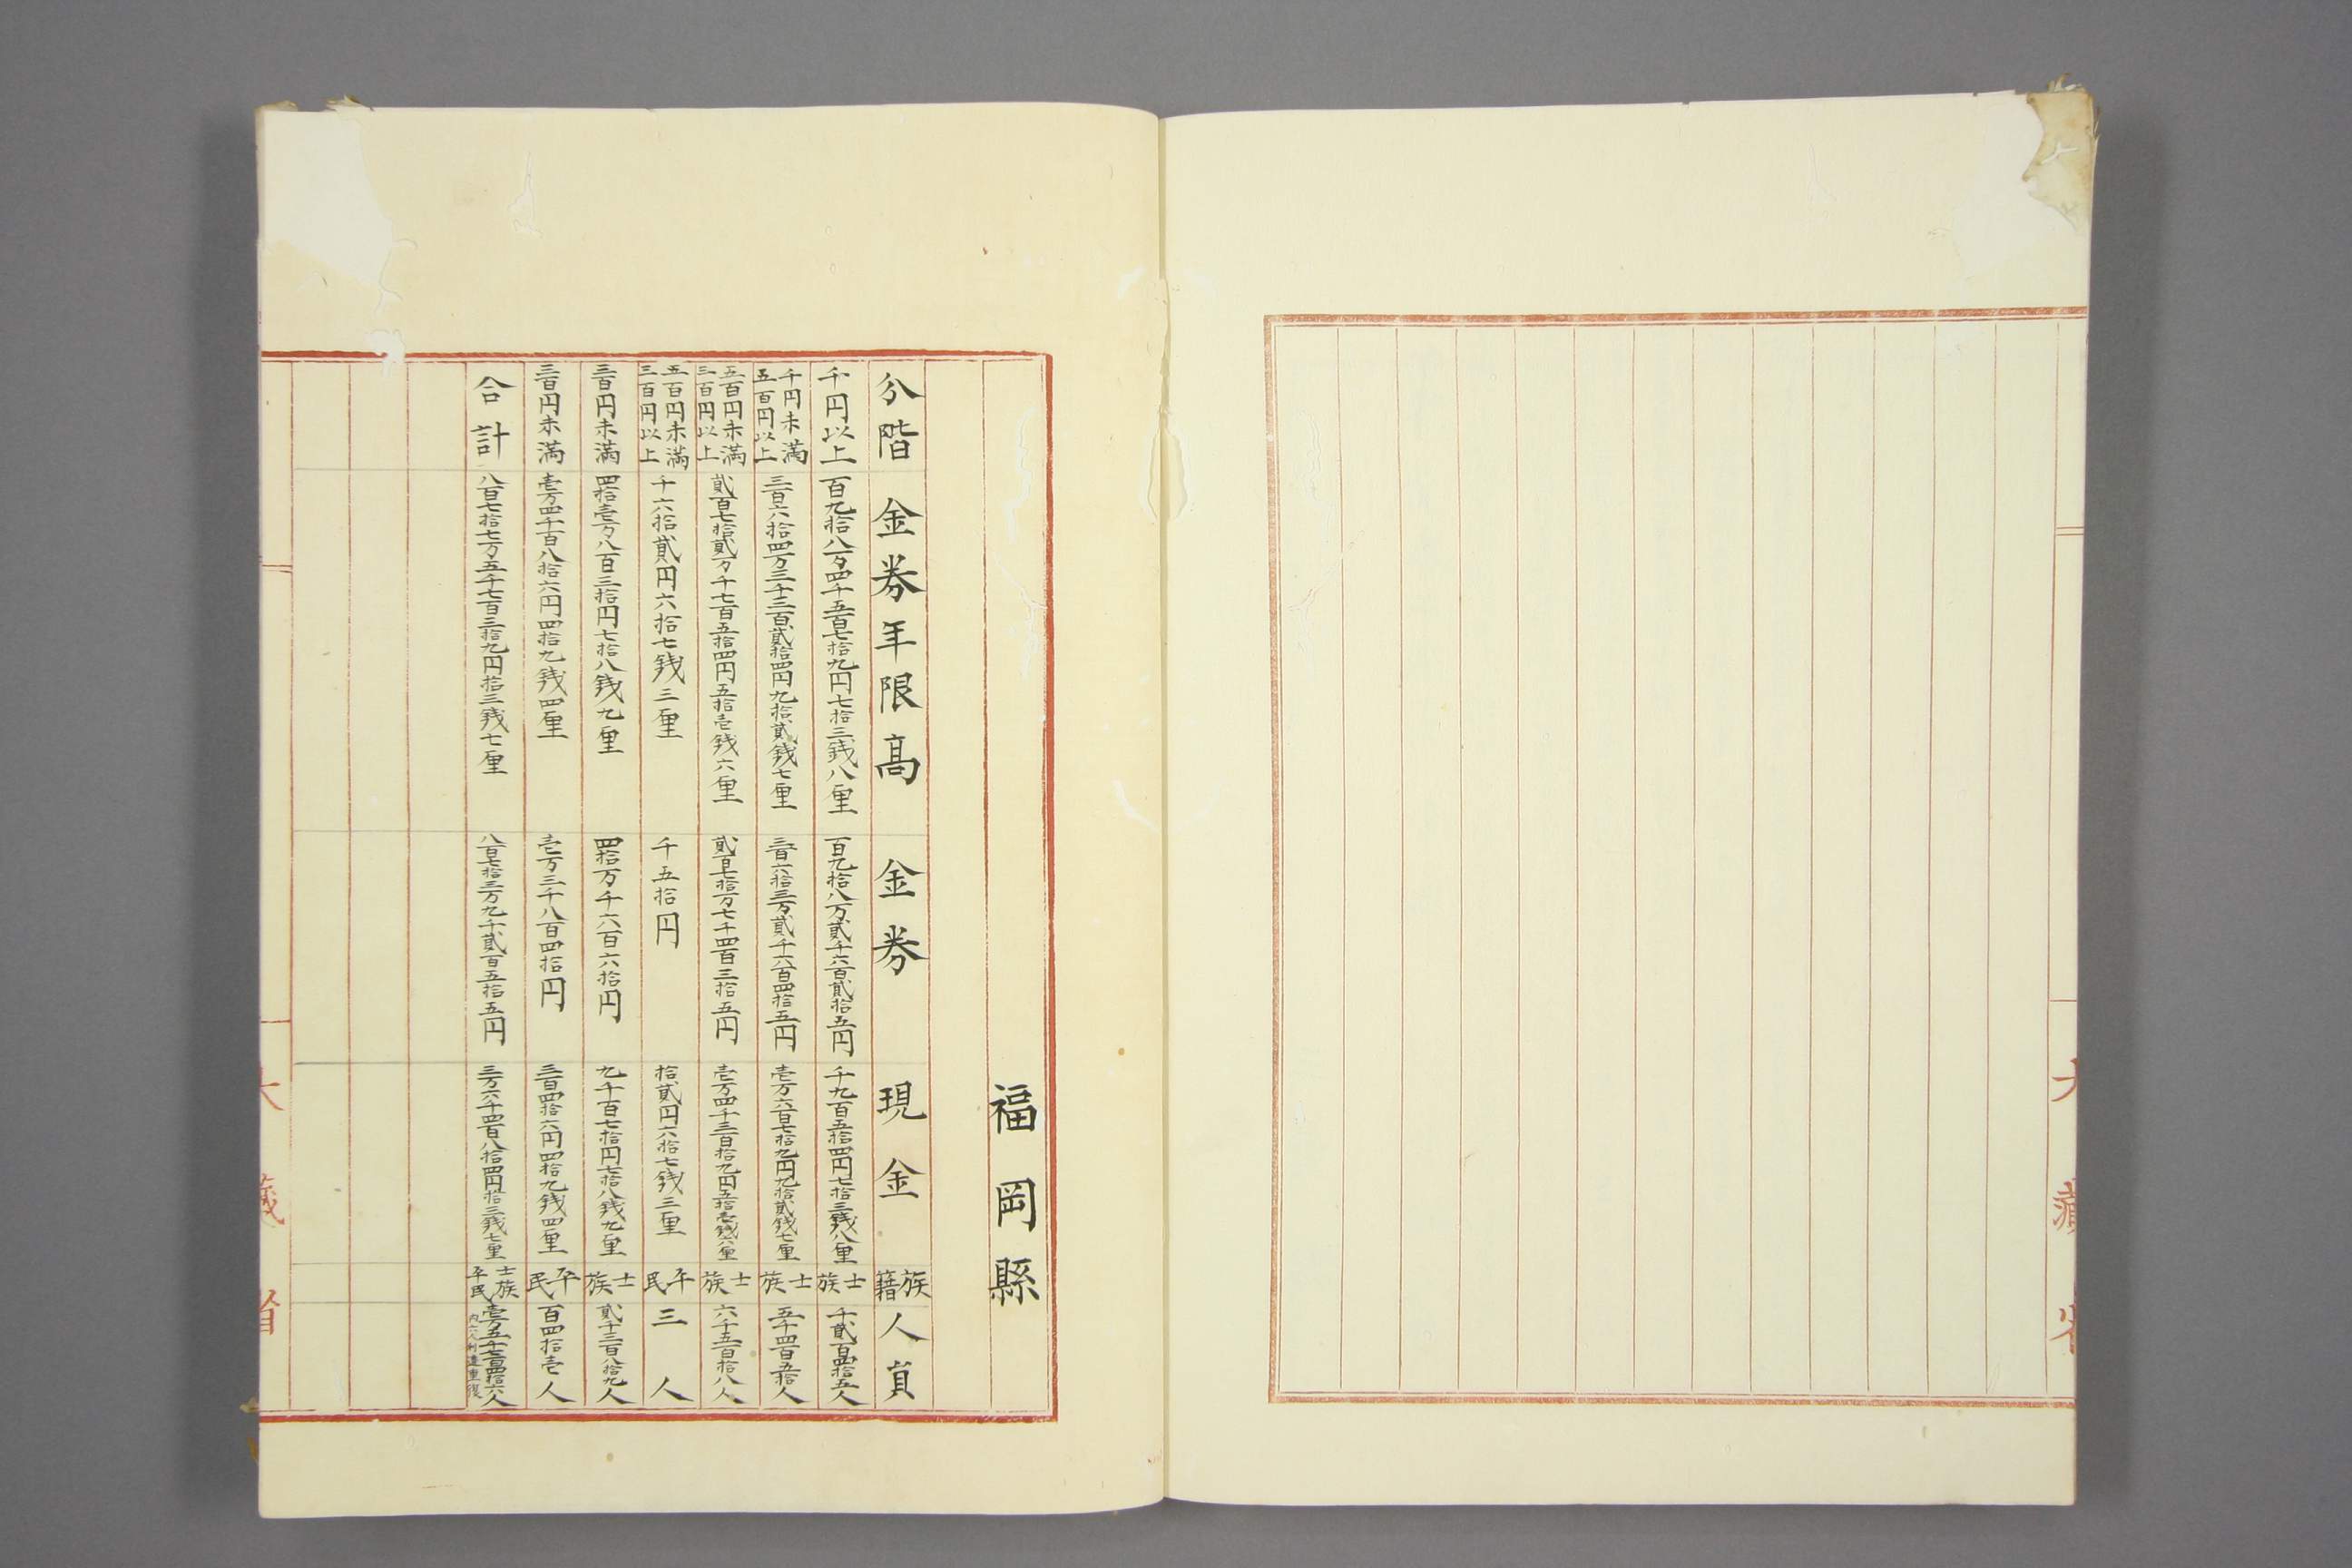 福岡縣
分階 金券年限高 金券 現金 族籍 人員
千円以上 百九拾八万四千五百七拾九円七拾三銭八厘 百九拾八万貳千六百貳拾五円 千九百五拾四円七拾三銭八厘 士族 千貳百四拾五人
千円未満五百円以上 三百六拾四万三千三百貳拾四円九拾貳銭七厘 三百六拾三万貳千六百四拾五円 壱万六百七拾九円九拾貳銭七厘 士族 五千四百五拾人
五百円未満三百円以上 貳百七拾貳万千七百五拾四円五拾壱銭六厘 貳百七拾万七千四百三拾五円 壱万四千三百拾九円五拾壱銭六厘 士族 六千五百拾八人
五百円未満三百円以上 千六拾貳円六拾七銭三厘 千五拾円 拾貳円六拾七銭三厘 平民 三人
三百円未満 四拾壱万八百三拾円七拾八銭九厘 四拾万千六百六拾円 九千百七拾円七拾八銭九厘 士族 貳千三百八拾九人
三百円未満 壱万四千百八拾六円四拾九銭四厘 壱万三千八百四拾円 三百四拾六円四拾九銭四厘 平民 百四拾壱人
合計 八百七拾七万五千七百三拾九円拾三銭七厘 八百七拾三万九千貳百五拾五円 三万六千四百八拾四円拾三銭七厘 士族平民 壱万五千七百四拾六人
内六人利違重複